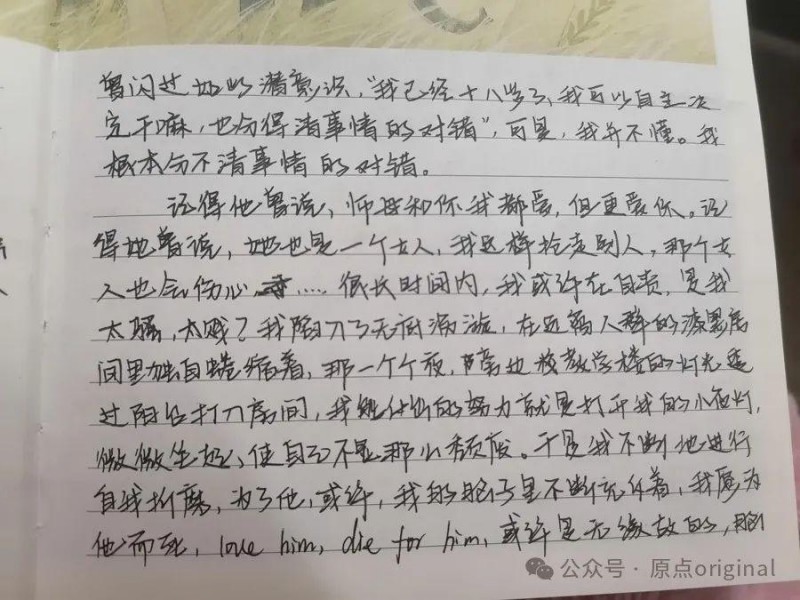 曾闪过如的潜意识，“我已经十八岁了，我可以自主决
定干嘛，也分得清事情的对错”，可是，我并不懂。我
根本分不清事情的对错。
记得他曾说，师母和你我都爱，但更爱你。记
得她曾说，她也是一个女人，我这样抢走别人，那个女
人也会伤心……很长时间内，我或许在自责，是我
太骚，太贱？我陷入了无底漩涡，在远离人群的漆黑房
间里独自蜷缩着，那一个个夜，隔边校教学楼的灯光透
过阳台打入房间，我能付出的努力就是打开我的小夜灯，
微微坐起，使自己不显那么颓废。于是我不断地进行
自我折磨，为了他，或许，我的脑子里不断充斥着，我愿为
他而死，love him, die for him，或许是无缘故的，脑
公众号 · 原点original